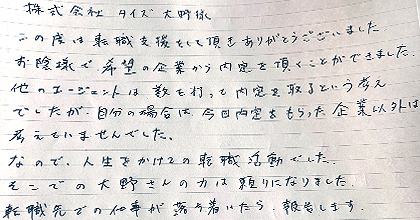 株式会社 タイズ 大野様
この度は転職支援をして頂きありがとうございました。
お陰様で希望の企業から内定を頂くことができました。
他のエージェントは数を打って内定を取るという考え
でしたが、自分の場合は、今回内定をもらった企業以外は
考えていませんでした。
なので、人生をかけての転職活動でした。
そこでの大野さんの力は頼りになりました。
転職先での仕事が落ち着いたら、報告します。